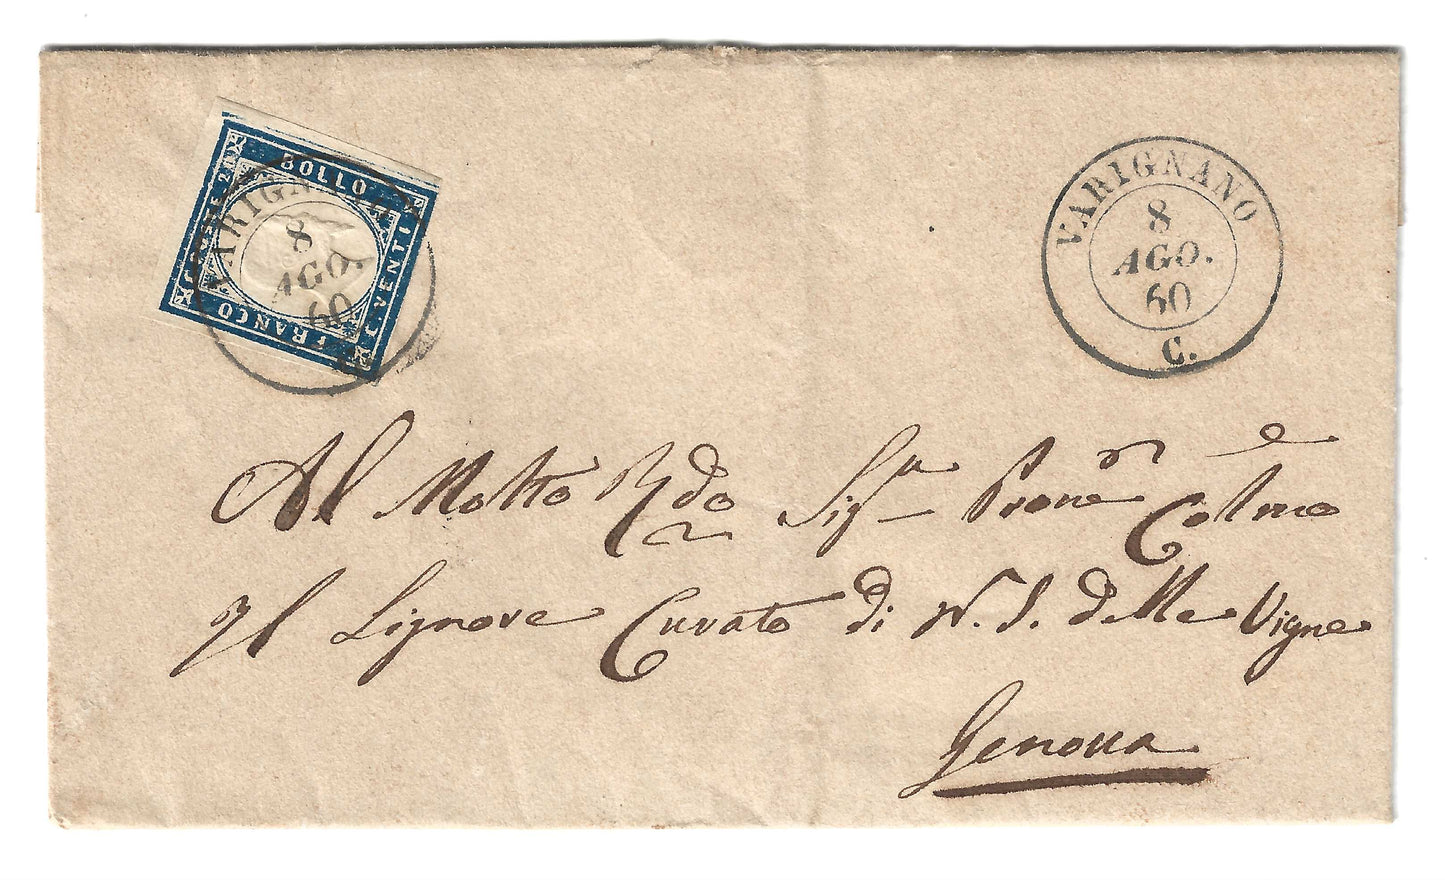 BOLLO
C. VENTI
FRANCO
CENTE 20
VARIGNANO
8
AGO.
60
VARIGNANO
8
AGO.
60
C.
Al Molto R.do Sig.r Prone Colmo
Il Signore Curato di N. S. delle Vigne
Genova